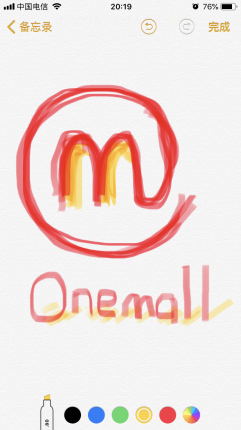 中国电信 20:19 76%
备忘录 完成
m
Onemall
80